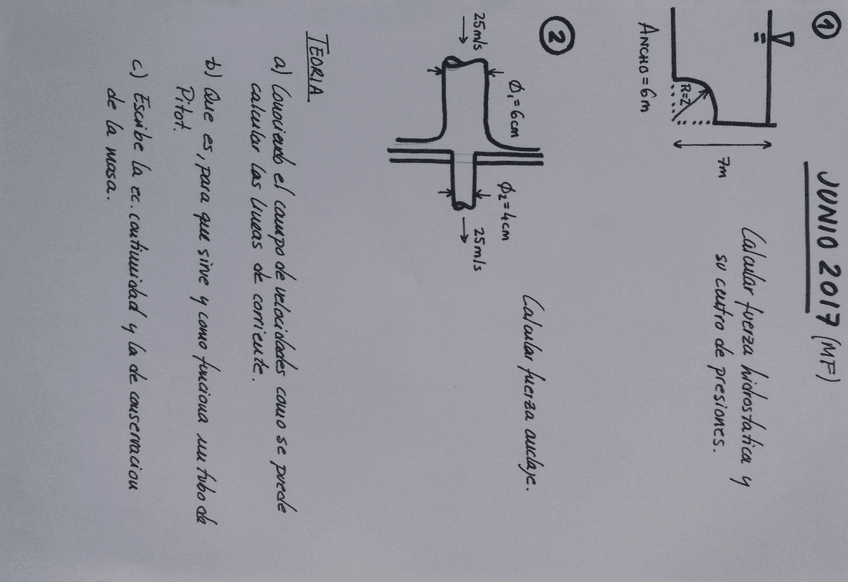 JUNIO 2017 (MF)
①
ANCHO = 6m
R=2
7m
Calcular fuerza hidrostatica y
su centro de presiones.
②
25m/s
Ø₁ = 6cm
Ø₂ = 4cm
25m/s
Calcular fuerza anclaje.
TEORIA
a) Conociendo el campo de velocidades como se puede
calcular las lineas de corriente.
b) Que es, para que sirve y como funciona un tubo de
Pitot.
c) Escribe la ec. continuidad y la de conservacion
de la masa.